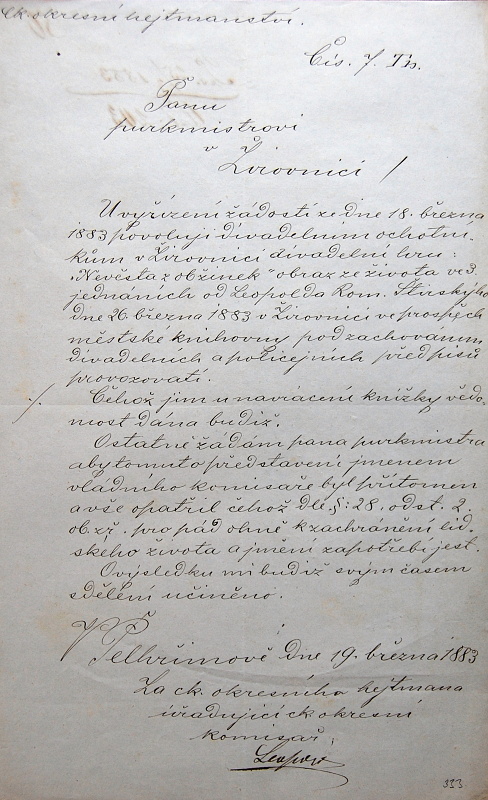 Ck. okresní hejtmanství.
Čís. 7. Th.
Panu
purkmistrovi
v
Žirovnici /
U vyřízení žádosti ze dne 18. března
1883 povoluji divadelním ochotní-
kům v Žirovnici divadelní hru:
„Nevěsta z obžinek" obraz ze života ve 3.
jednáních od Leopolda Rom. Štinského
dne 26. března 1883 v Žirovnici ve prospěch
městské knihovny pod zachováním
divadelních a policejních předpisů
provozovati.
./. Čehož jim u navrácení knížky vědo-
most dána budiž.
Ostatně žádám pana purkmistra
aby tomuto představení jmenem
vládního komisaře byl přítomen
a vše opatřil čehož dle §: 28. odst. 2.
ob. zř. pro pád ohně k zachránění lid-
ského života a jmění zapotřebí jest.
O výsledku mi budiž svým časem
sdělení učiněno.
V Pelhřimově dne 19. března 1883
Za ck. okresního hejtmana
úřadující ck okresní
komisař:
333